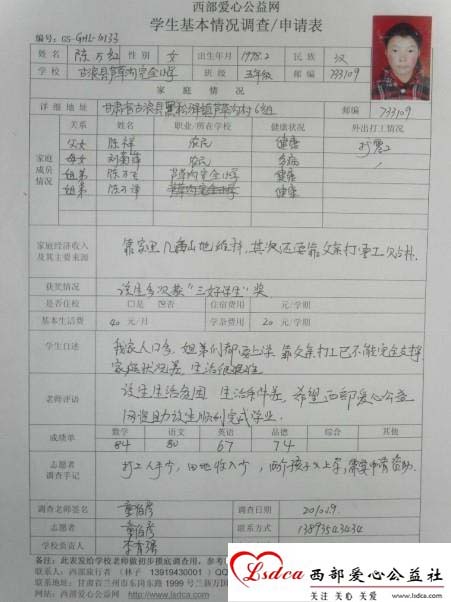 西部爱心公益网
学生基本情况调查/申请表
编号:GS-GHL-10133
姓名 陈万红 性别 女 出生年月 1998.2 民族 汉
学校 古浪县 完全小学 班级 五年级 邮编 733109
家庭情况
详细地址 甘肃省古浪县黑松驿镇芦草沟村6组 邮编 733109
关系 姓名 职业/所在学校 健康状况 外出打工情况
家庭成员情况
父女 陈祥 农民 健康 打零工
母女 刘菊萍 农民 多病
姐弟 陈万 芦草沟完全小学 健康
姐弟 陈万 芦草沟完全小学 健康
家庭经济收入及其主要来源 靠家里几亩山地维持,其次还要靠父亲打零工贴补
获奖情况 该生多次获"三好学生"奖
是否住校 口是 口否 住宿费用 元/学期
基本生活费 40 元/月 学杂费用 20 元/学期
学生自述 我家人口多,姐弟们都要上学,靠父亲打工已不能完全支撑
家庭状况差,生活很艰难
老师评语 该生生活贫困 生活条件差,希望西部爱心公益
网资助故生顺利完成学业.
成绩单 数学 语文 英语 品德 综合 其他
84 80 67 74
志愿者调查手记 打工人手少,田地收入少,两个孩子又上学,需要申请资助.
调查老师签名 调查日期
志愿者 联系方式 13893543434
学校责任人
备注:此表发给学校老师做初步摸底调查用,参考
联系人:西部旅行者 (林子 13919430001) QQ
联系地址:甘肃省兰州市东岗东路1999号三新万国
联系网站:西部爱心公益网
Lsdca 西部爱心公益社
关注 关心 关爱
www.lsdca.com